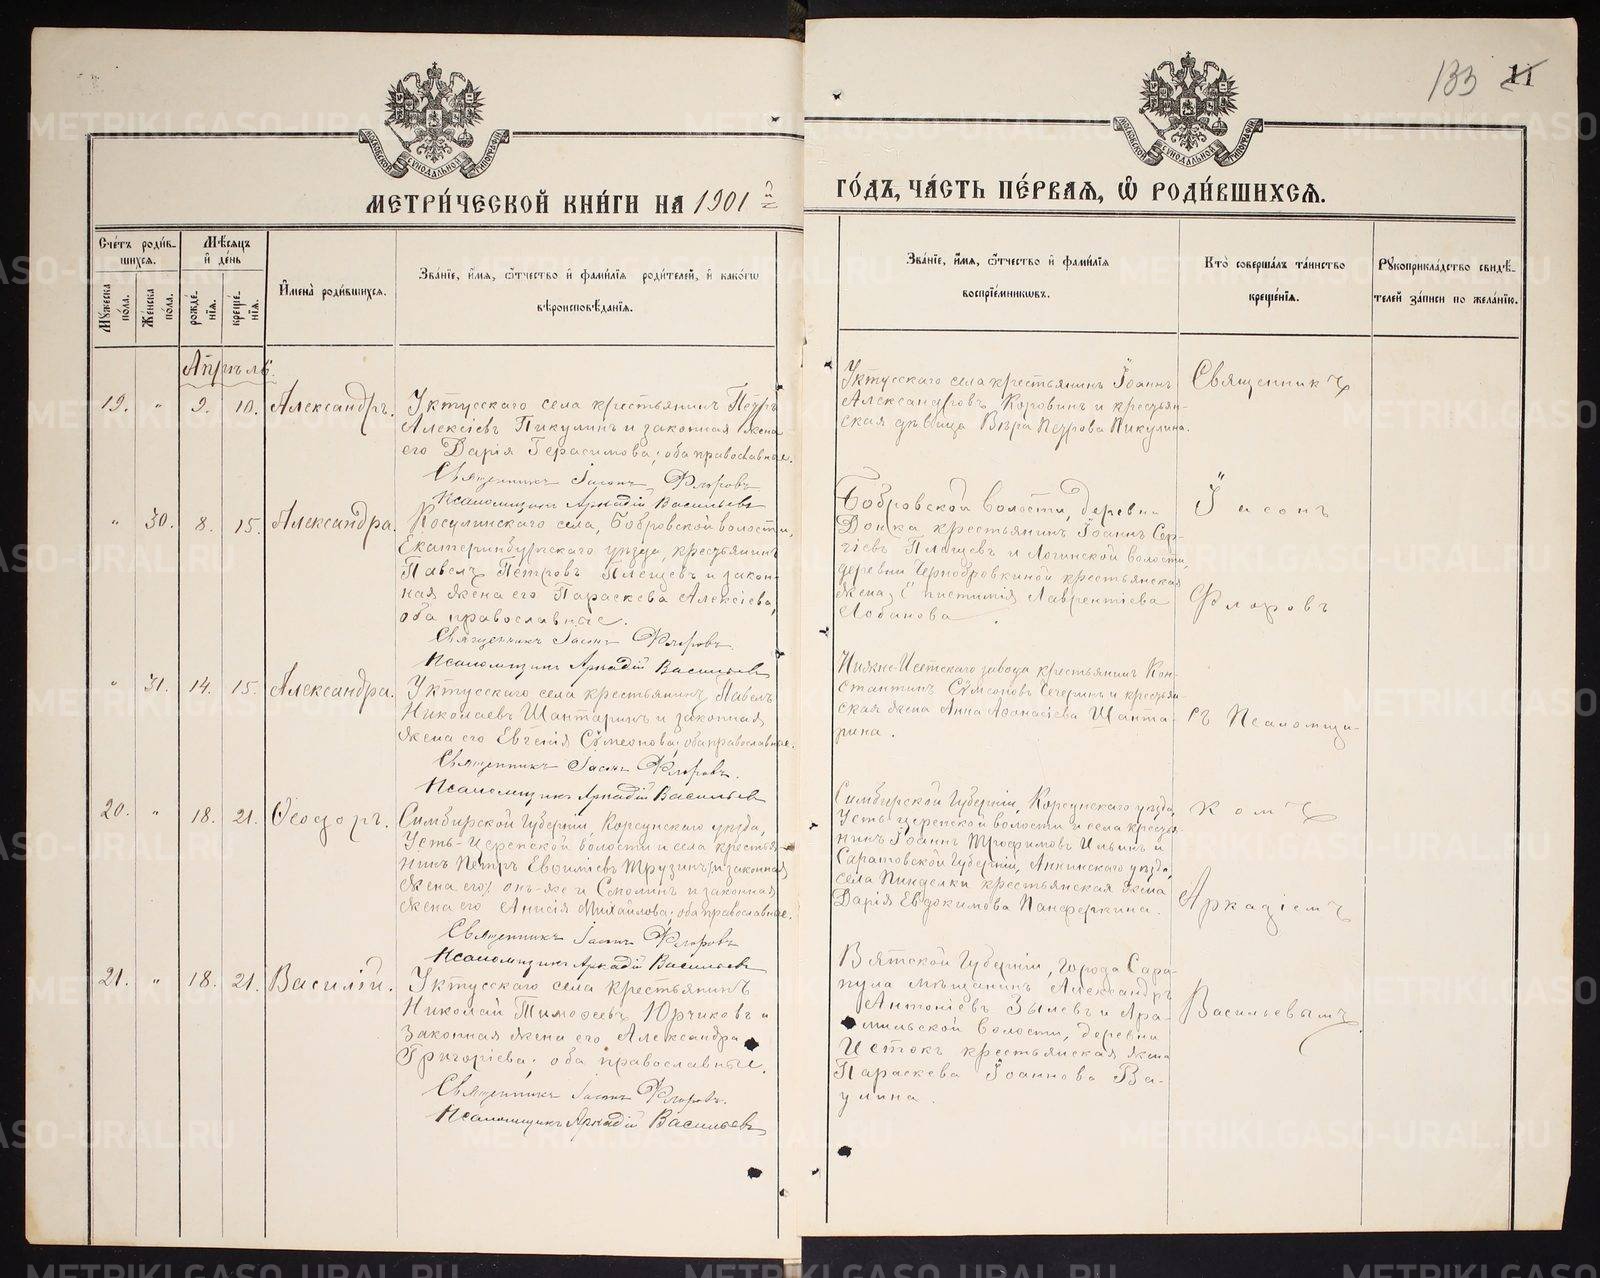 133 11
МОСКОВСКОЙ СУНОДАЛЬНОЙ ТИПОГРАФІИ
МОСКОВСКОЙ СУНОДАЛЬНОЙ ТИПОГРАФІИ
МЕТРИ́ЧЕСКОЙ КНИ́ГИ НА 1901 г.
ГО́ДЪ, ЧА́СТЬ ПЕ́РВАЯ, Ѽ РОДИ́ВШИХСЯ.
Сче́тъ роди́в-
шихся.
Мꙋ́жеска пола.
Же́нска по́ла.
Мѣ́сяцъ
и̂ де́нь
рожде́-
нїя.
креще́-
нїя.
И̂мена̀ роди́вшихся.
Зва́нїе, и̂́мя, ѻ҆́тчество и̂ фами́лїя роди́телей, и̂ како́гѡ
вѣроисповѣ́данїя.
Зва́нїе, и̂́мя, ѻ҆́тчество и̂ фами́лїя
воспрїе́мникѡвъ.
Кто̀ соверша́лъ та́инство
креще́нїя.
Рꙋкоприкла́дство свидѣ́-
телей за́писи по жела́нїю.
Апрѣль.
19. " 9. 10. Александръ.
Уктусскаго села крестьянинъ Петръ
Алексіевъ Пикулинъ и законная жена
его Дарія Герасимова; оба православные.
Священникъ Іасонъ Флоровъ
Псаломщикъ Аркадій Васильевъ
Уктусскаго села крестьянинъ Іоаннъ
Александровъ Коровинъ и крестьян-
ская дѣвица Вѣра Петрова Пикулина.
Священникъ
" 30. 8. 15. Александра.
Косулинскаго села, Бобровской волости,
Екатеринбургскаго уѣзда, крестьянинъ
Павелъ Петровъ Плещевъ и закон-
ная жена его Параскева Алексіева,
оба православные.
Священникъ Іасонъ Флоровъ.
Псаломщикъ Аркадій Васильевъ
Бобровской волости, деревни
крестьянинъ Іоаннъ Сер-
гіевъ Плещевъ и Логинской волости,
деревни Чернобровкиной крестьянская
жена Епистимія Лаврентіева
Лобанова.
Іасонъ
Флоровъ
" 31. 14. 15. Александра.
Уктусскаго села крестьянинъ Павелъ
Николаевъ Шантаринъ и законная
жена его Евгенія Сѵмеонова; оба православные.
Священникъ Іасонъ Флоровъ.
Псаломщикъ Аркадій Васильевъ
Нижне-Исетскаго завода крестьянинъ Кон-
стантинъ Сѵмеоновъ и крестьян-
ская жена Анна Аѳанасіева Шанта-
рина.
съ Псаломщи-
20. " 18. 21. Ѳеодоръ.
Симбирской Губерніи, Корсунскаго уѣзда,
Усть-Уренской волости и села крестья-
нинъ Петръ Евѳиміевъ Трузинъ (и законная
жена его) онъ-же и Смолинъ и законная
жена его Анисія Михайлова; оба православные.
Священникъ Іасонъ Флоровъ
Псаломщикъ Аркадій Васильевъ
Симбирской Губерніи, Корсунскаго уѣзда,
Усть-Уренской волости и села крестья-
нинъ Іоаннъ Трофимовъ Ильинъ и
Саратовской Губерніи, уѣзда,
села Пинделки крестьянская жена
Дарія Евдокимова Панферкина.
комъ
Аркадіемъ
21. " 18. 21. Василій.
Уктусскаго села крестьянинъ
Николай Тимоѳеевъ Юрчиковъ и
законная жена его Александра
Григоріева; оба православные.
Священникъ Іасонъ Флоровъ.
Псаломщикъ Аркадій Васильевъ
Вятской Губерніи, города Сара-
пула мѣщанинъ Александръ
Антоніевъ Зылевъ и Ара-
мильской волости, деревни
Истокъ крестьянская жена
Параскева Іоаннова Ва-
улина.
Васильевымъ.
METRIKI.GASO-URAL.RU